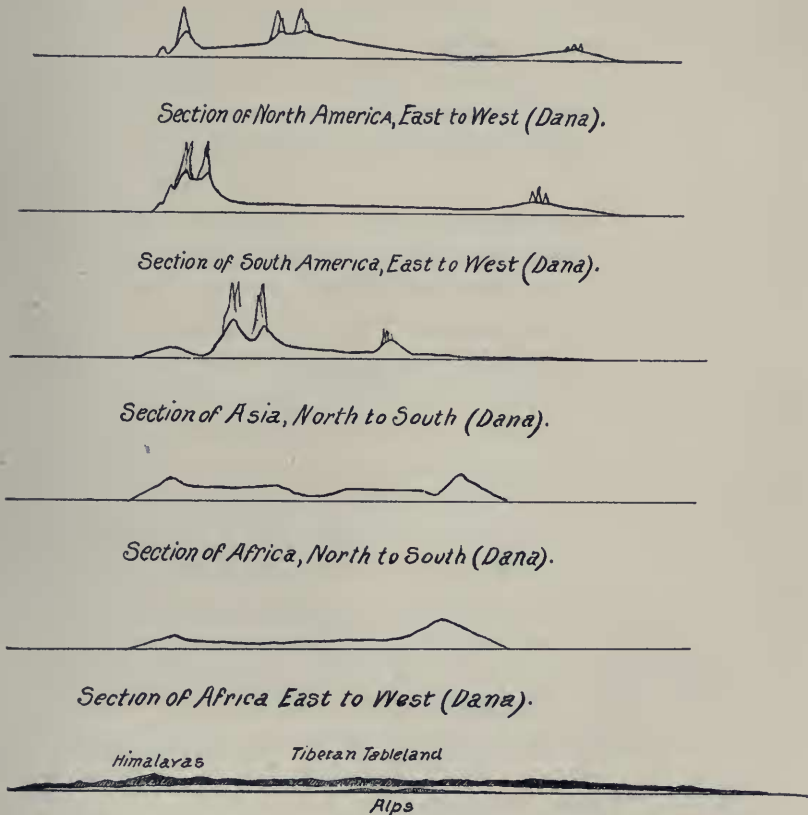 Section of North America, East to West (Dana).
Section of South America, East to West (Dana).
Section of Asia, North to South (Dana).
Section of Africa, North to South (Dana).
Section of Africa East to West (Dana).
Himalayas Tibetan Tableland
Alps